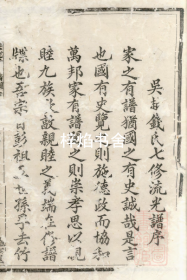 吳古錢氏七修流光譜序
家之有譜猶國之有史誠哉是言
也國有史覽之則施德政而協和
萬邦家有譜之則崇孝思以親
睦九族飞敵親睦之美端在修譜
牒也吾宗自彭祖之孫孚去行